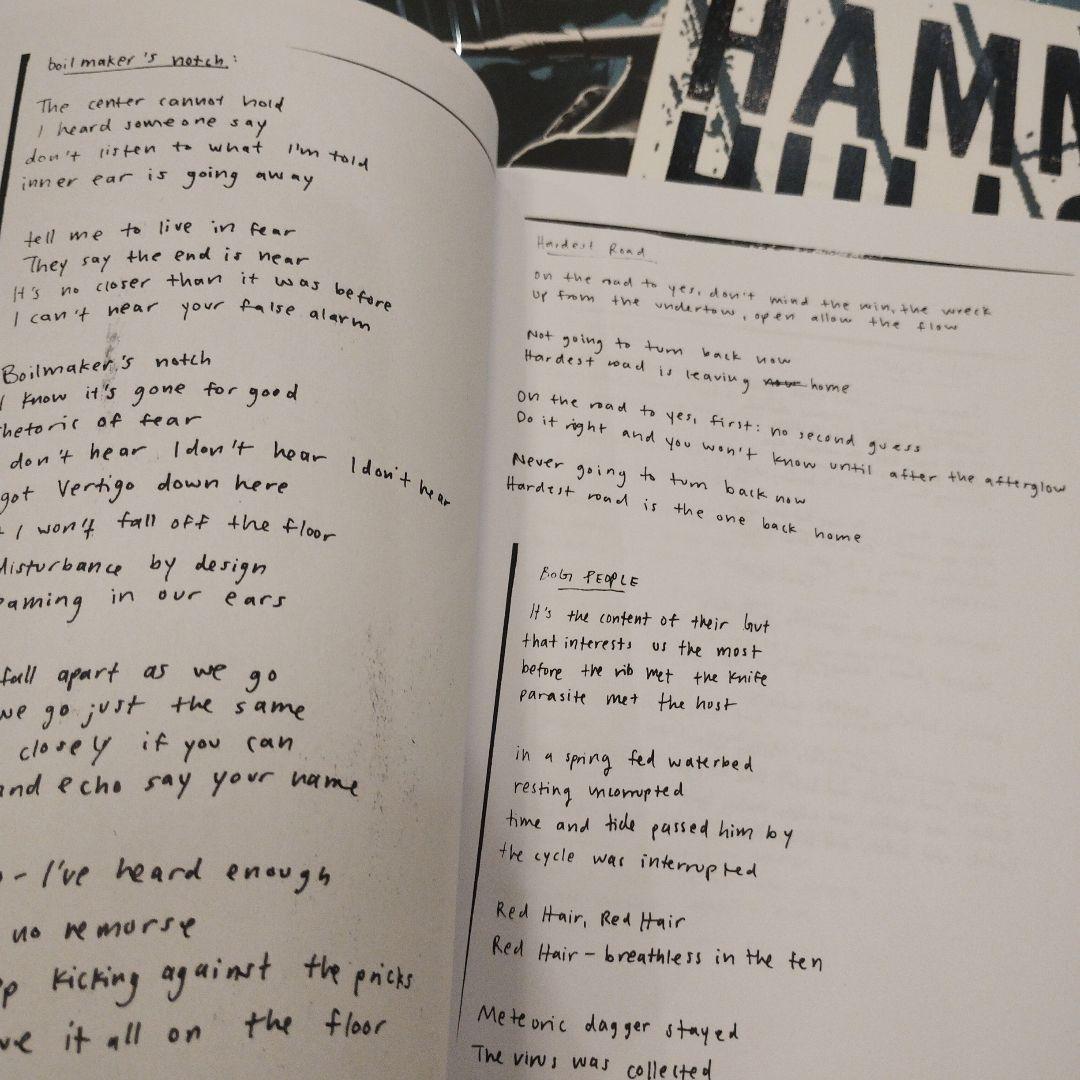 boilmaker's notch:
The center cannot hold
I heard someone say
don't listen to what I'm told
inner ear is going away
tell me to live in fear
They say the end is near
It's no closer than it was before
I can't hear your false alarm
Boilmaker's notch
I know it's gone for good
rhetoric of fear
don't hear I don't hear I don't hear
got Vertigo down here
I won't fall off the floor
disturbance by design
in our ears
fall apart as we go
we go just the same
closely if you can
and echo say your name
- I've heard enough
no remorse
kicking against the pricks
it all on the floor
HAMM
Hardest Road
On the road to yes, don't mind the ruin, the wreck
Up from the undertow, open allow the flow
Not going to turn back now
Hardest road is leaving now home
On the road to yes, first: no second guess
Do it right and you won't know until after the afterglow
Never going to turn back now
Hardest road is the one back home
BOG PEOPLE
It's the content of their Gut
that interests us the most
before the rib met the knife
parasite met the host
in a spring fed waterbed
resting uncorrupted
time and tide passed him by
the cycle was interrupted
Red Hair, Red Hair
Red Hair - breathless in the fen
Meteoric dagger stayed
The virus was collected